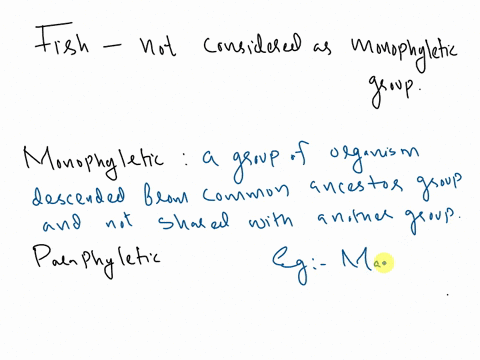 Fish - not considered as monophyletic
group.
Monophyletic : a group of organism
descended from common ancestor group
and not shared with another group.
Paraphyletic Eg:- Ma